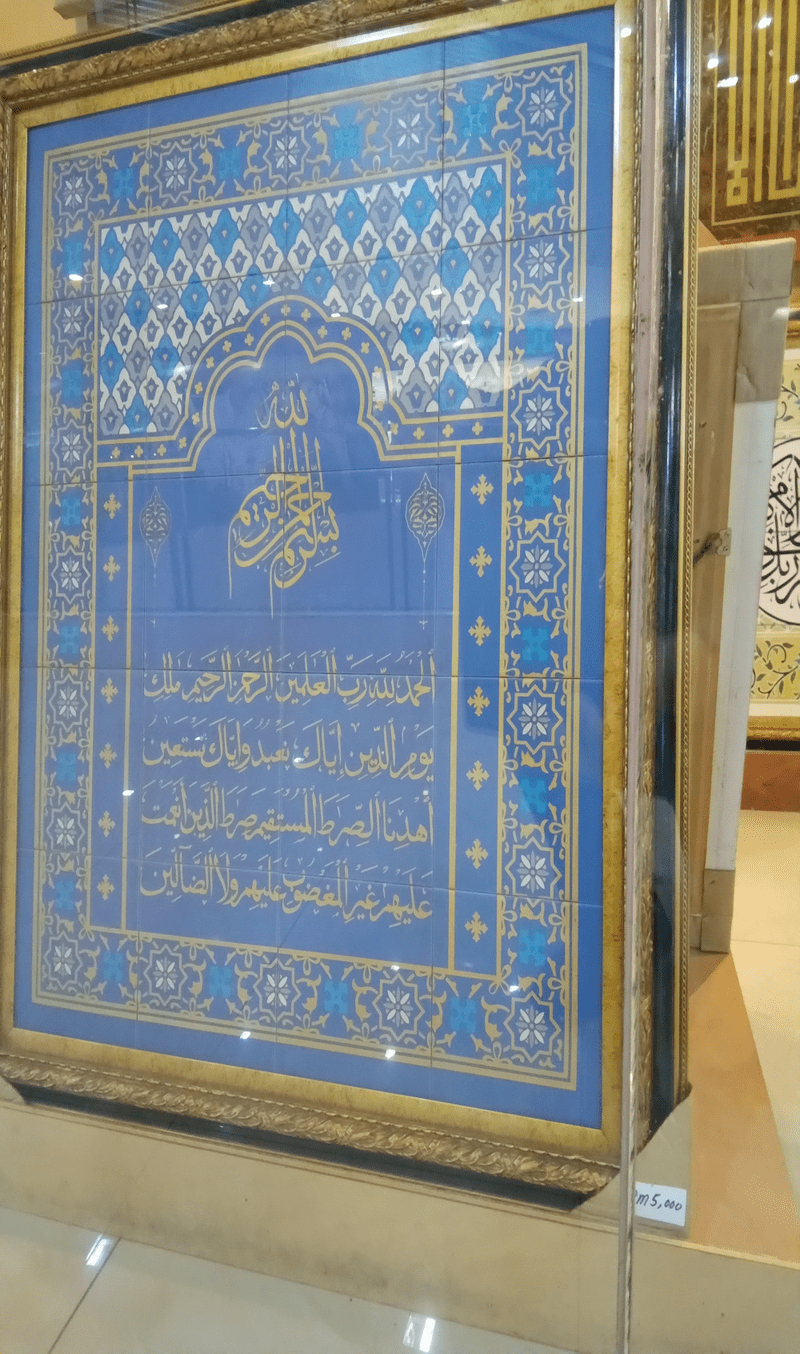 بسم الله الرحمن الرحيم
الحمد لله رب العالمين الرحمن الرحيم ملك
يوم الدين إياك نعبد وإياك نستعين
اهدنا الصرط المستقيم صرط الذين أنعمت
عليهم غير المغضوب عليهم ولا الضالين
RM5,000